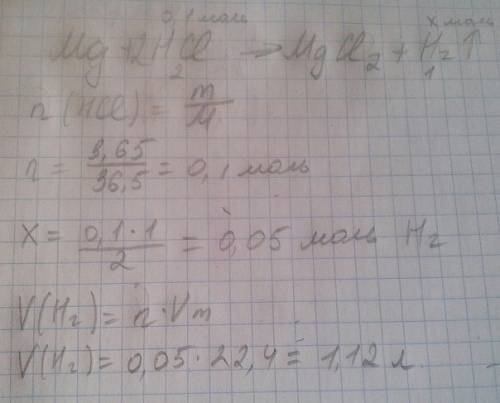 0,1 моль x моль
Mg + 2HCl → MgCl₂ + H₂↑
2 1
n (HCl) = m/M
n = 3,65/36,5 = 0,1 моль
X = 0,1·1/2 = 0,05 моль H₂
V(H₂) = n·Vm
V(H₂) = 0,05·22,4 = 1,12 л.